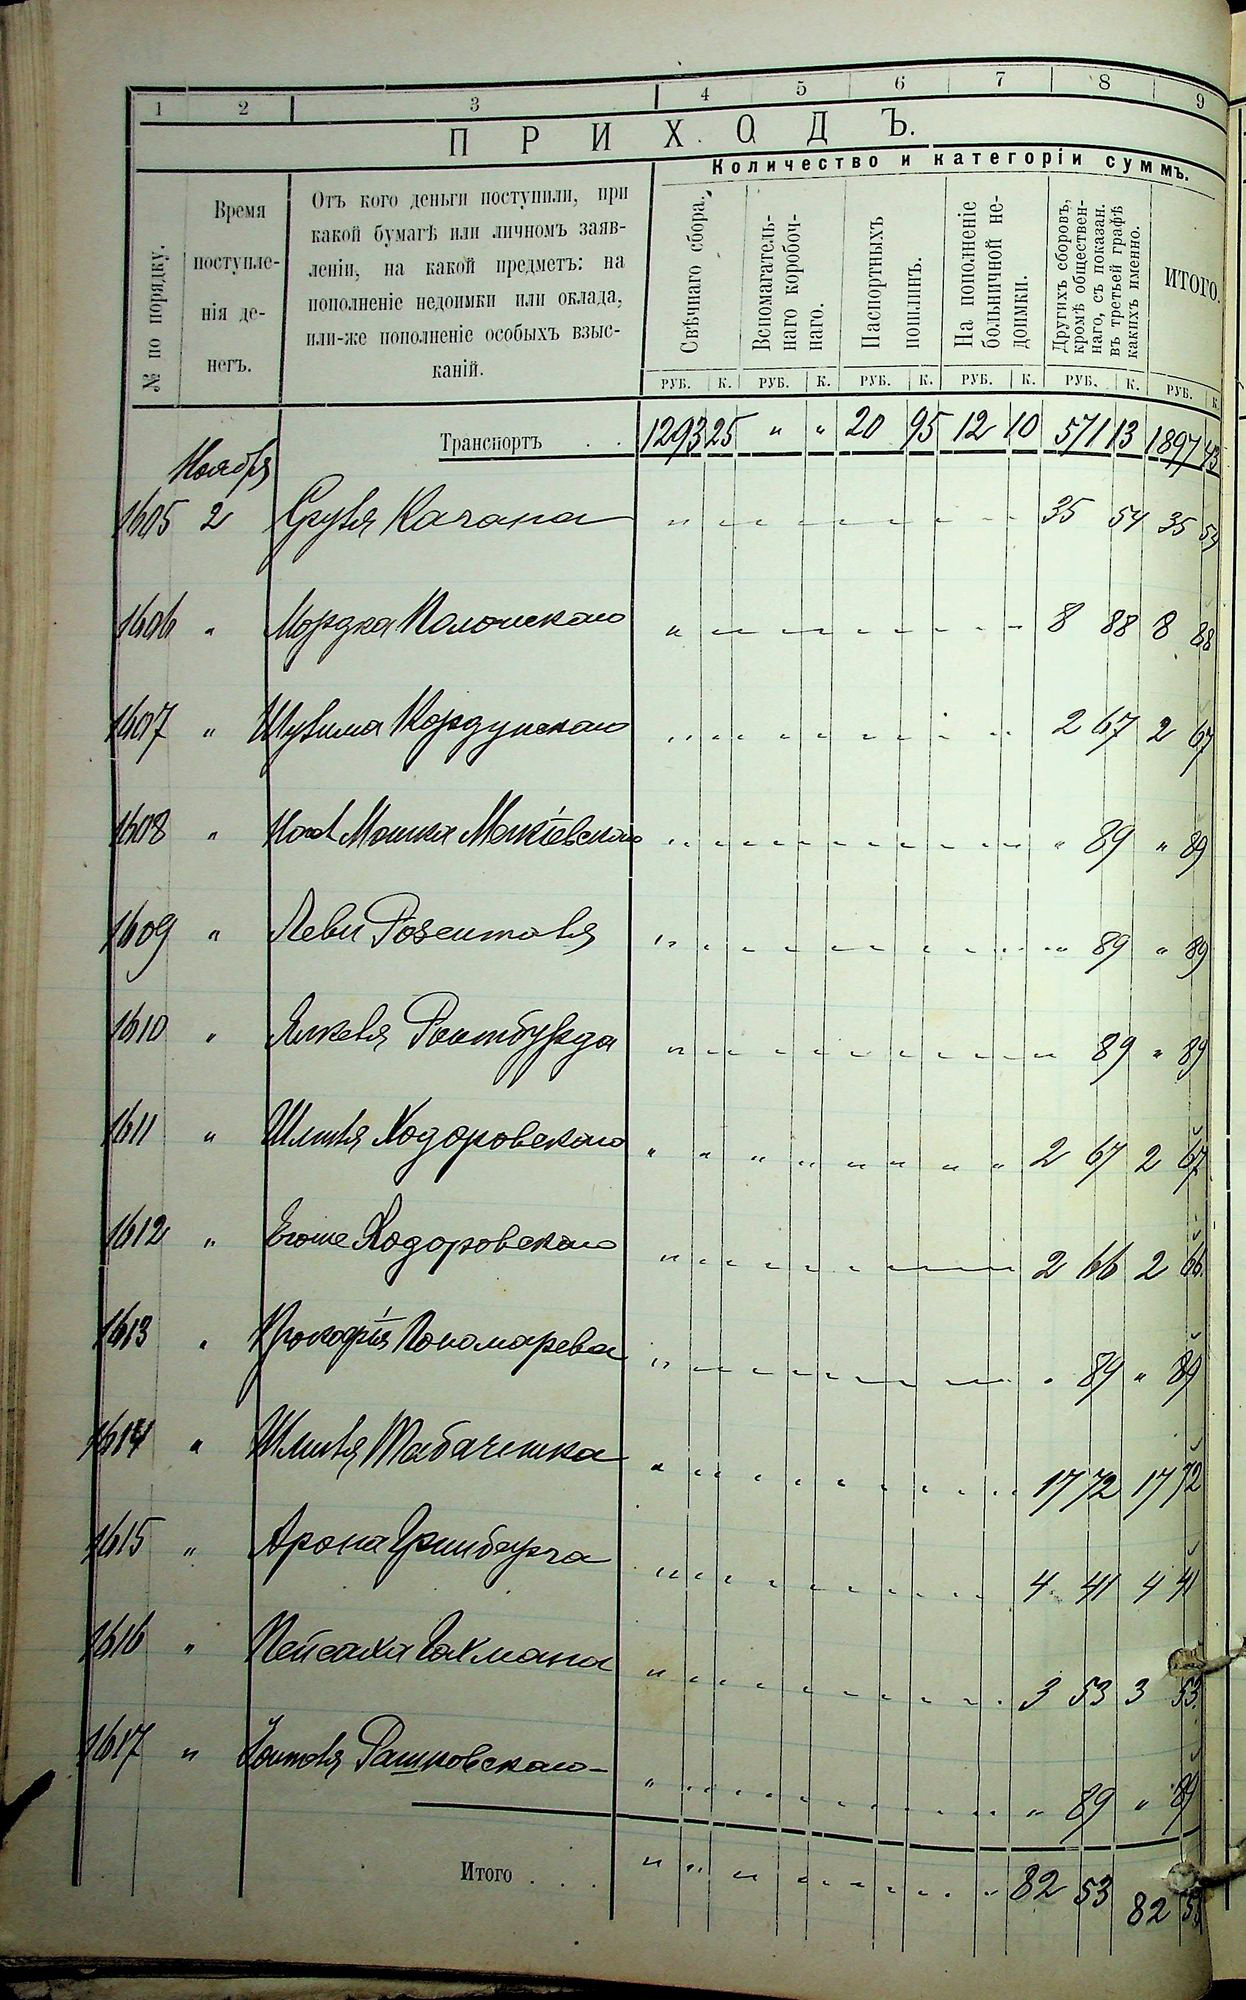 1 2 3 4 5 6 7 8 9
ПРИХОДЪ.
Количество и категоріи суммъ.
№ по порядку.
Время
поступле-
нія де-
негъ.
Отъ кого деньги поступили, при
какой бумагѣ или личномъ заяв-
леніи, на какой предметъ: на
пополненіе недоимки или оклада,
или-же пополненіе особыхъ взыс-
каній.
Свѣчнаго сбора.
Вспомагатель-
наго коробоч-
наго.
Паспортныхъ
пошлинъ.
На пополненіе
больничной не-
доимки.
Другихъ сборовъ,
кромѣ обществен-
наго, съ показан.
въ третьей графѣ
какихъ именно.
ИТОГО.
РУБ. К. РУБ. К. РУБ. К. РУБ. К. РУБ. К. РУБ. К.
Транспортъ . . 1293 25 " " 20 95 12 10 571 13 1897 43
Ноября
1605 2 Качана 35 54 35 54
1606 " Мордка 8 88 8 88
1607 " Кордунскаго 2 67 2 67
1608 " Мошка " 89 " 89
1609 " Леви " 89 " 89
1610 " Ротбурда " 89 " 89
1611 " Ходоровскаго 2 67 2 67
1612 " Ходоровскаго 2 66 2 66
1613 " Прокофія Пономарева " 89 " 89
1614 " Табачника 17 72 17 72
1615 " Арона Гринберга 4 41 4 41
1616 " Пейсаха Гахмана 3 53 3 53
1617 " Рашковскаго " 89 " 89
Итого . . . 82 53 82 53